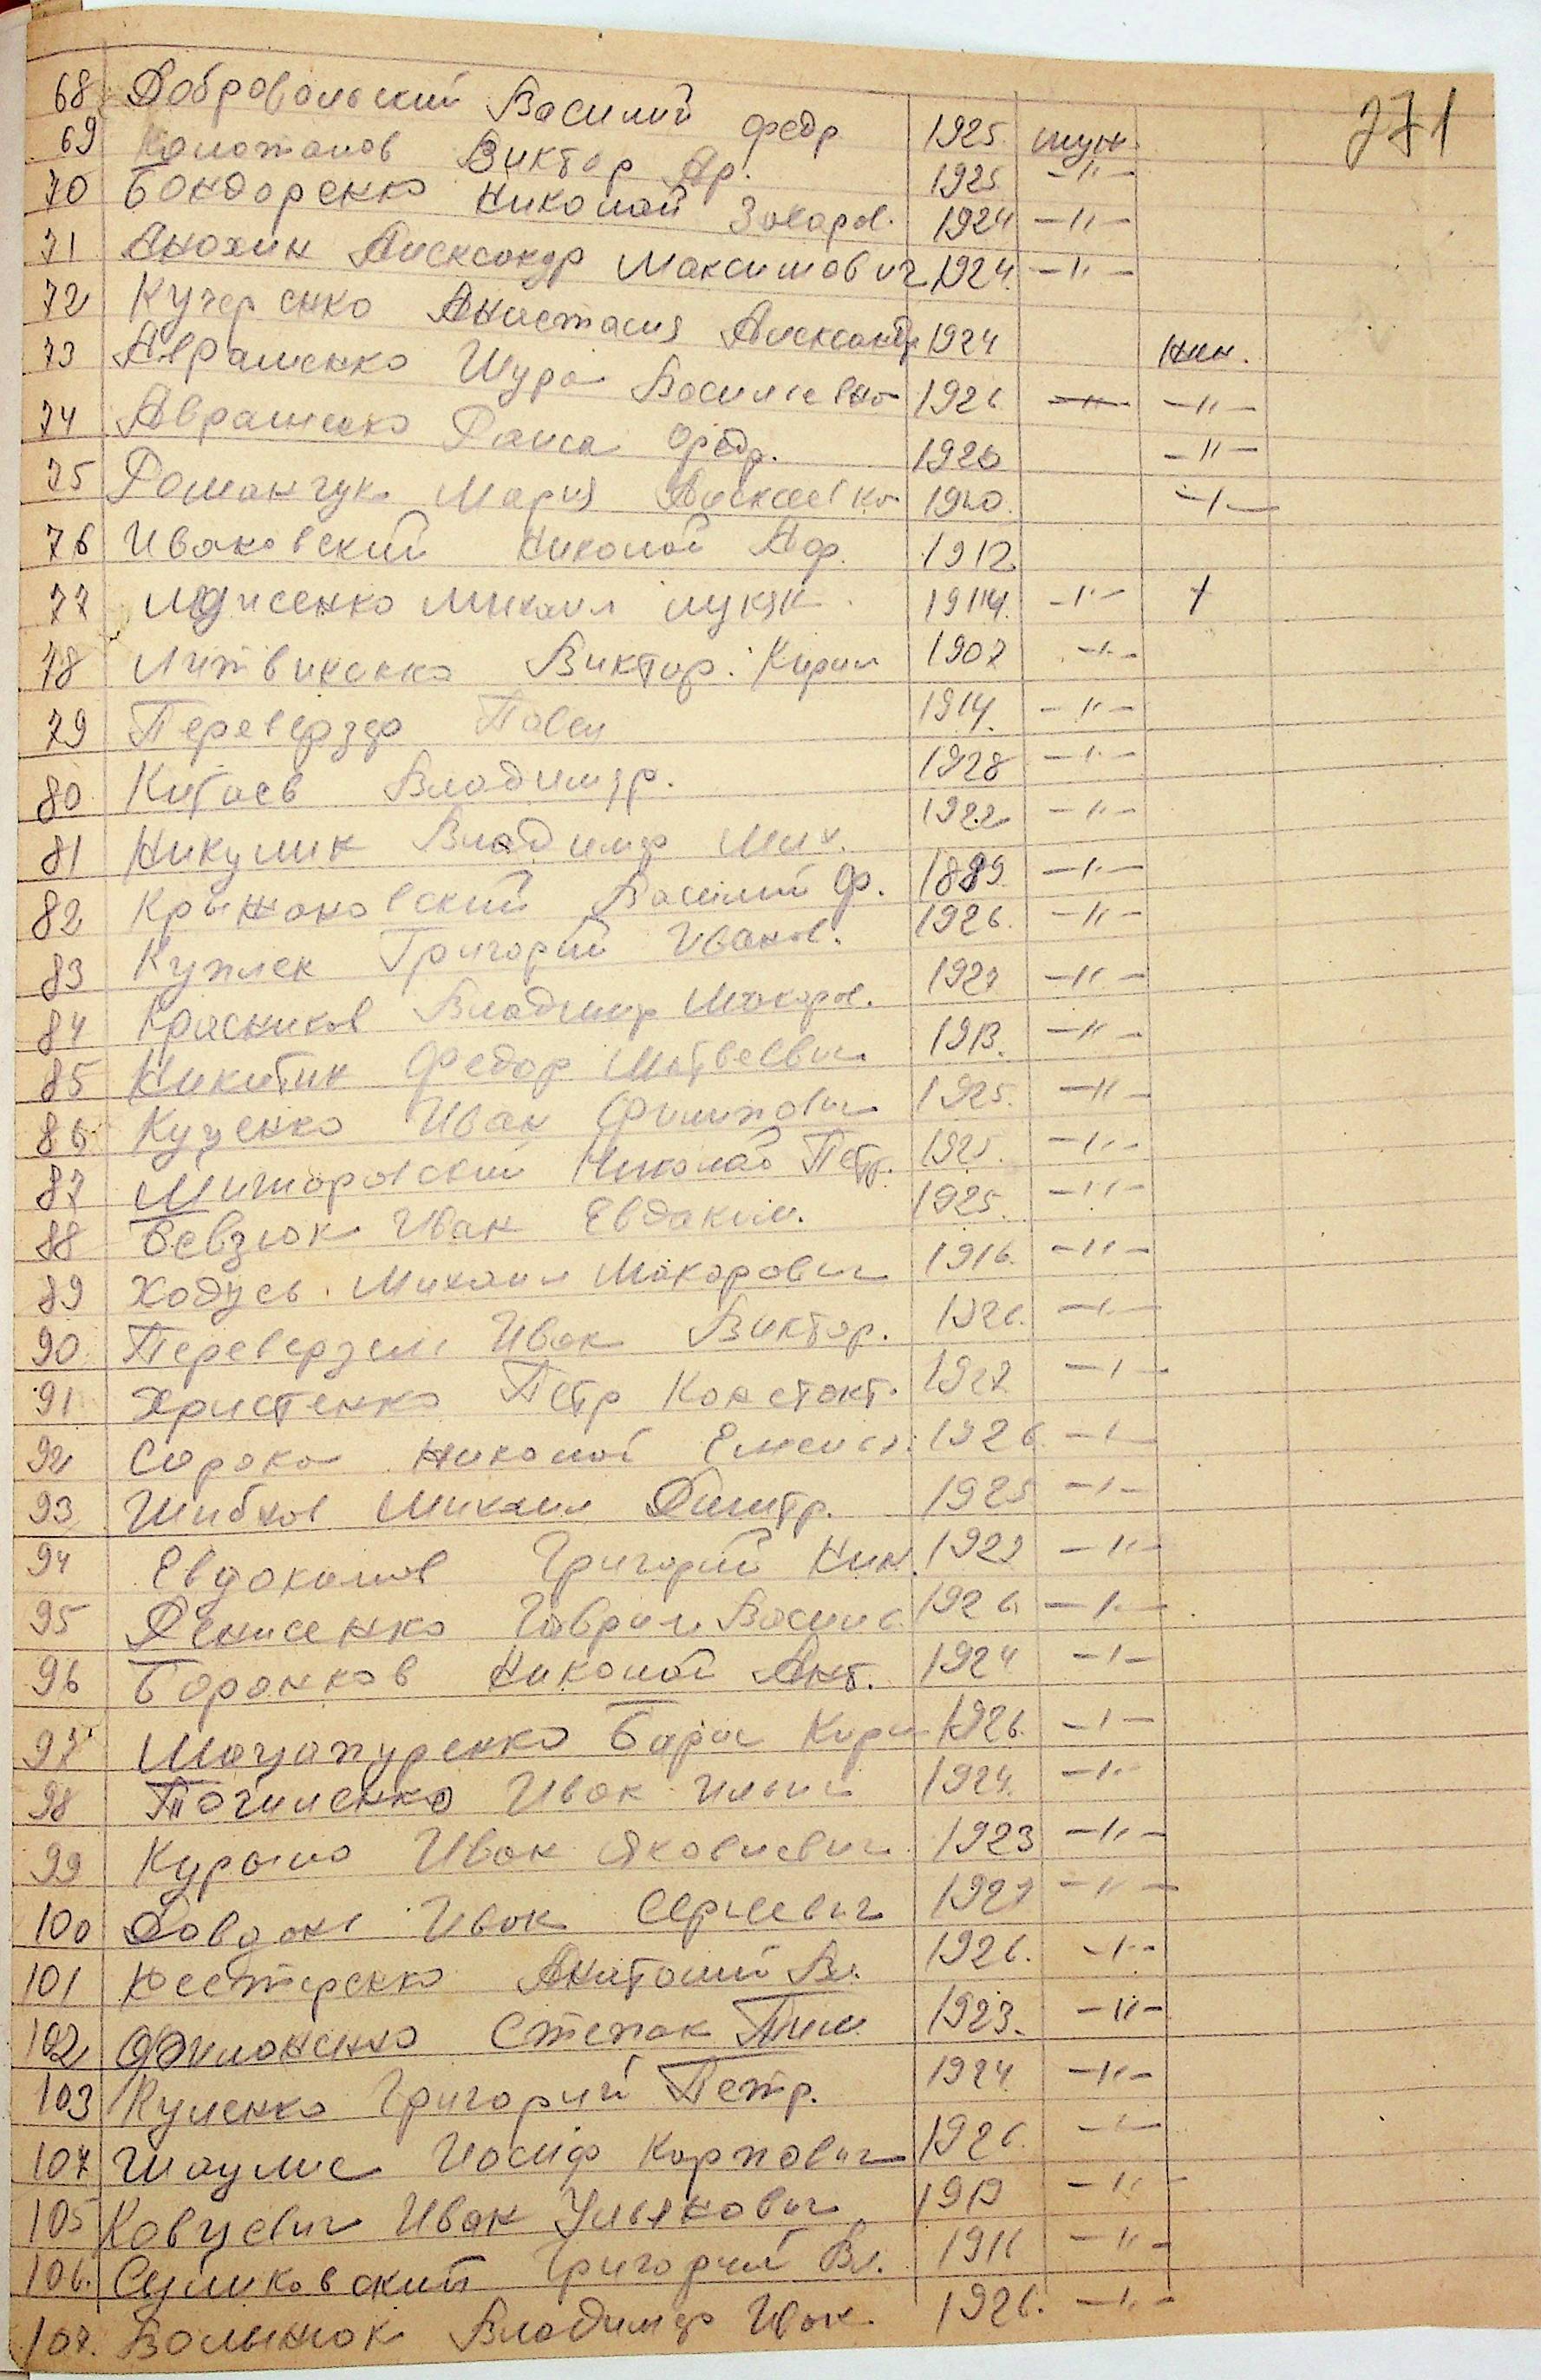 271
68 Добровольский Василий Федр 1925 муж.
69 Виктор Ар. 1925 -"-
70 Бондаренко Николай Захаров. 1924 -"-
71 Анохин Александр Максимович 1924 -"-
72 Кучеренко Анастасия Александр 1924 жен.
73 Авраменко Шура Василиевна 1926 -"- -"-
74 Авраменко Раиса Федр. 1926 -"-
75 Романчук Мария Алексеевна 1920. -"-
76 Иваковский Николай Аф. 1912
77 Михаил Лукян 1914. -"-
78 Литвиненко Виктор. Кирил 1907 -"-
79 Павел 1914. -"-
80 Китаев Владимир. 1928 -"-
81 Никулин Владимир Мих. 1922 -"-
82 Крыжановский Василий Ф. 1889 -"-
83 Григорий Иванов. 1926. -"-
84 Красников Владимир Макаров. -"-
85 Никитин Федор Матвеевич 1913. -"-
86 Куценко Иван Филипович 1925. -"-
87 Николай Петр. 1925. -"-
88 Бевзюк Иван Евдаким. 1925. -"-
89 Ходусь Михаил Макарович 1916. -"-
90 Иван Виктор. 1926. -"-
91 Христенко Петр Констант. 1927 -"-
92 Сорока Николай 1926 -"-
93 Шибков Михаил Дмитр. 1925 -"-
94 Евдокимов Григорий Ник. -"-
95 Денисенко Гаврил Васил. 1926 -"-
96 Баранков Николай Ант. 1924 -"-
97 Мацапуренко Борис Кирил 1926. -"-
98 Точиленко Иван Ильич 1924. -"-
99 Курыло Иван Яковлевич 1923 -"-
100 Иван Сергеевич -"-
101 Нестеренко Анатолий Вл. 1926. -"-
102 Филоненко Степан Тим. 1923. -"-
103 Куленко Григорий Петр. 1924 -"-
104 Шаулис Иосиф Карпович 1926. -"-
105 Ковуевич Иван Ульянович -"-
106. Суликовский Григорий Вл. -"-
107. Волынюк Владимир Иван. 1926. -"-